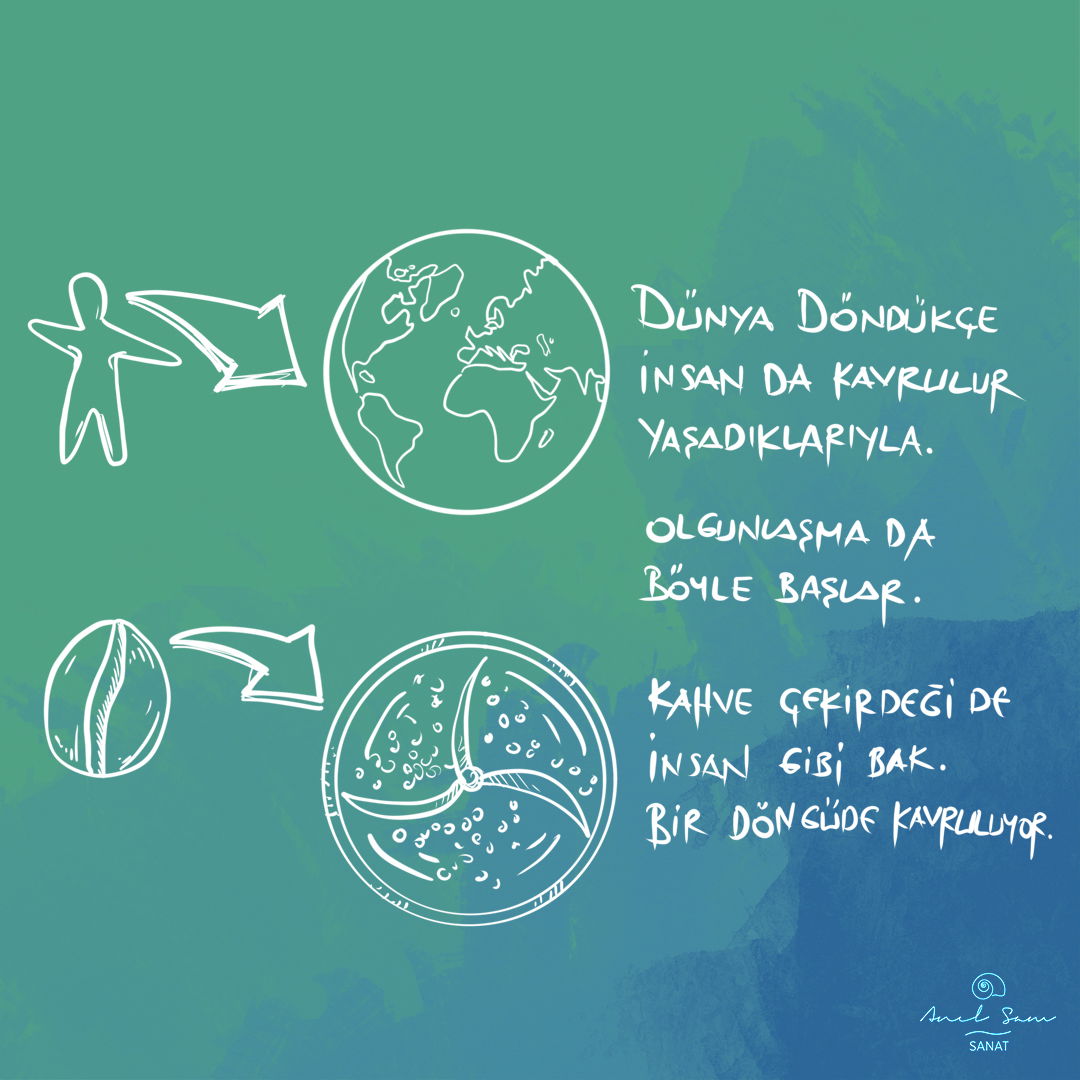 DÜNYA DÖNDÜKÇE
İNSAN DA KAVRULUR
YAŞADIKLARIYLA.
OLGUNLAŞMA DA
BÖYLE BAŞLAR.
KAHVE ÇEKİRDEĞİ DE
İNSAN GİBİ BAK.
BİR DÖNGÜDE KAVRULUYOR.
Anıl Sam
SANAT